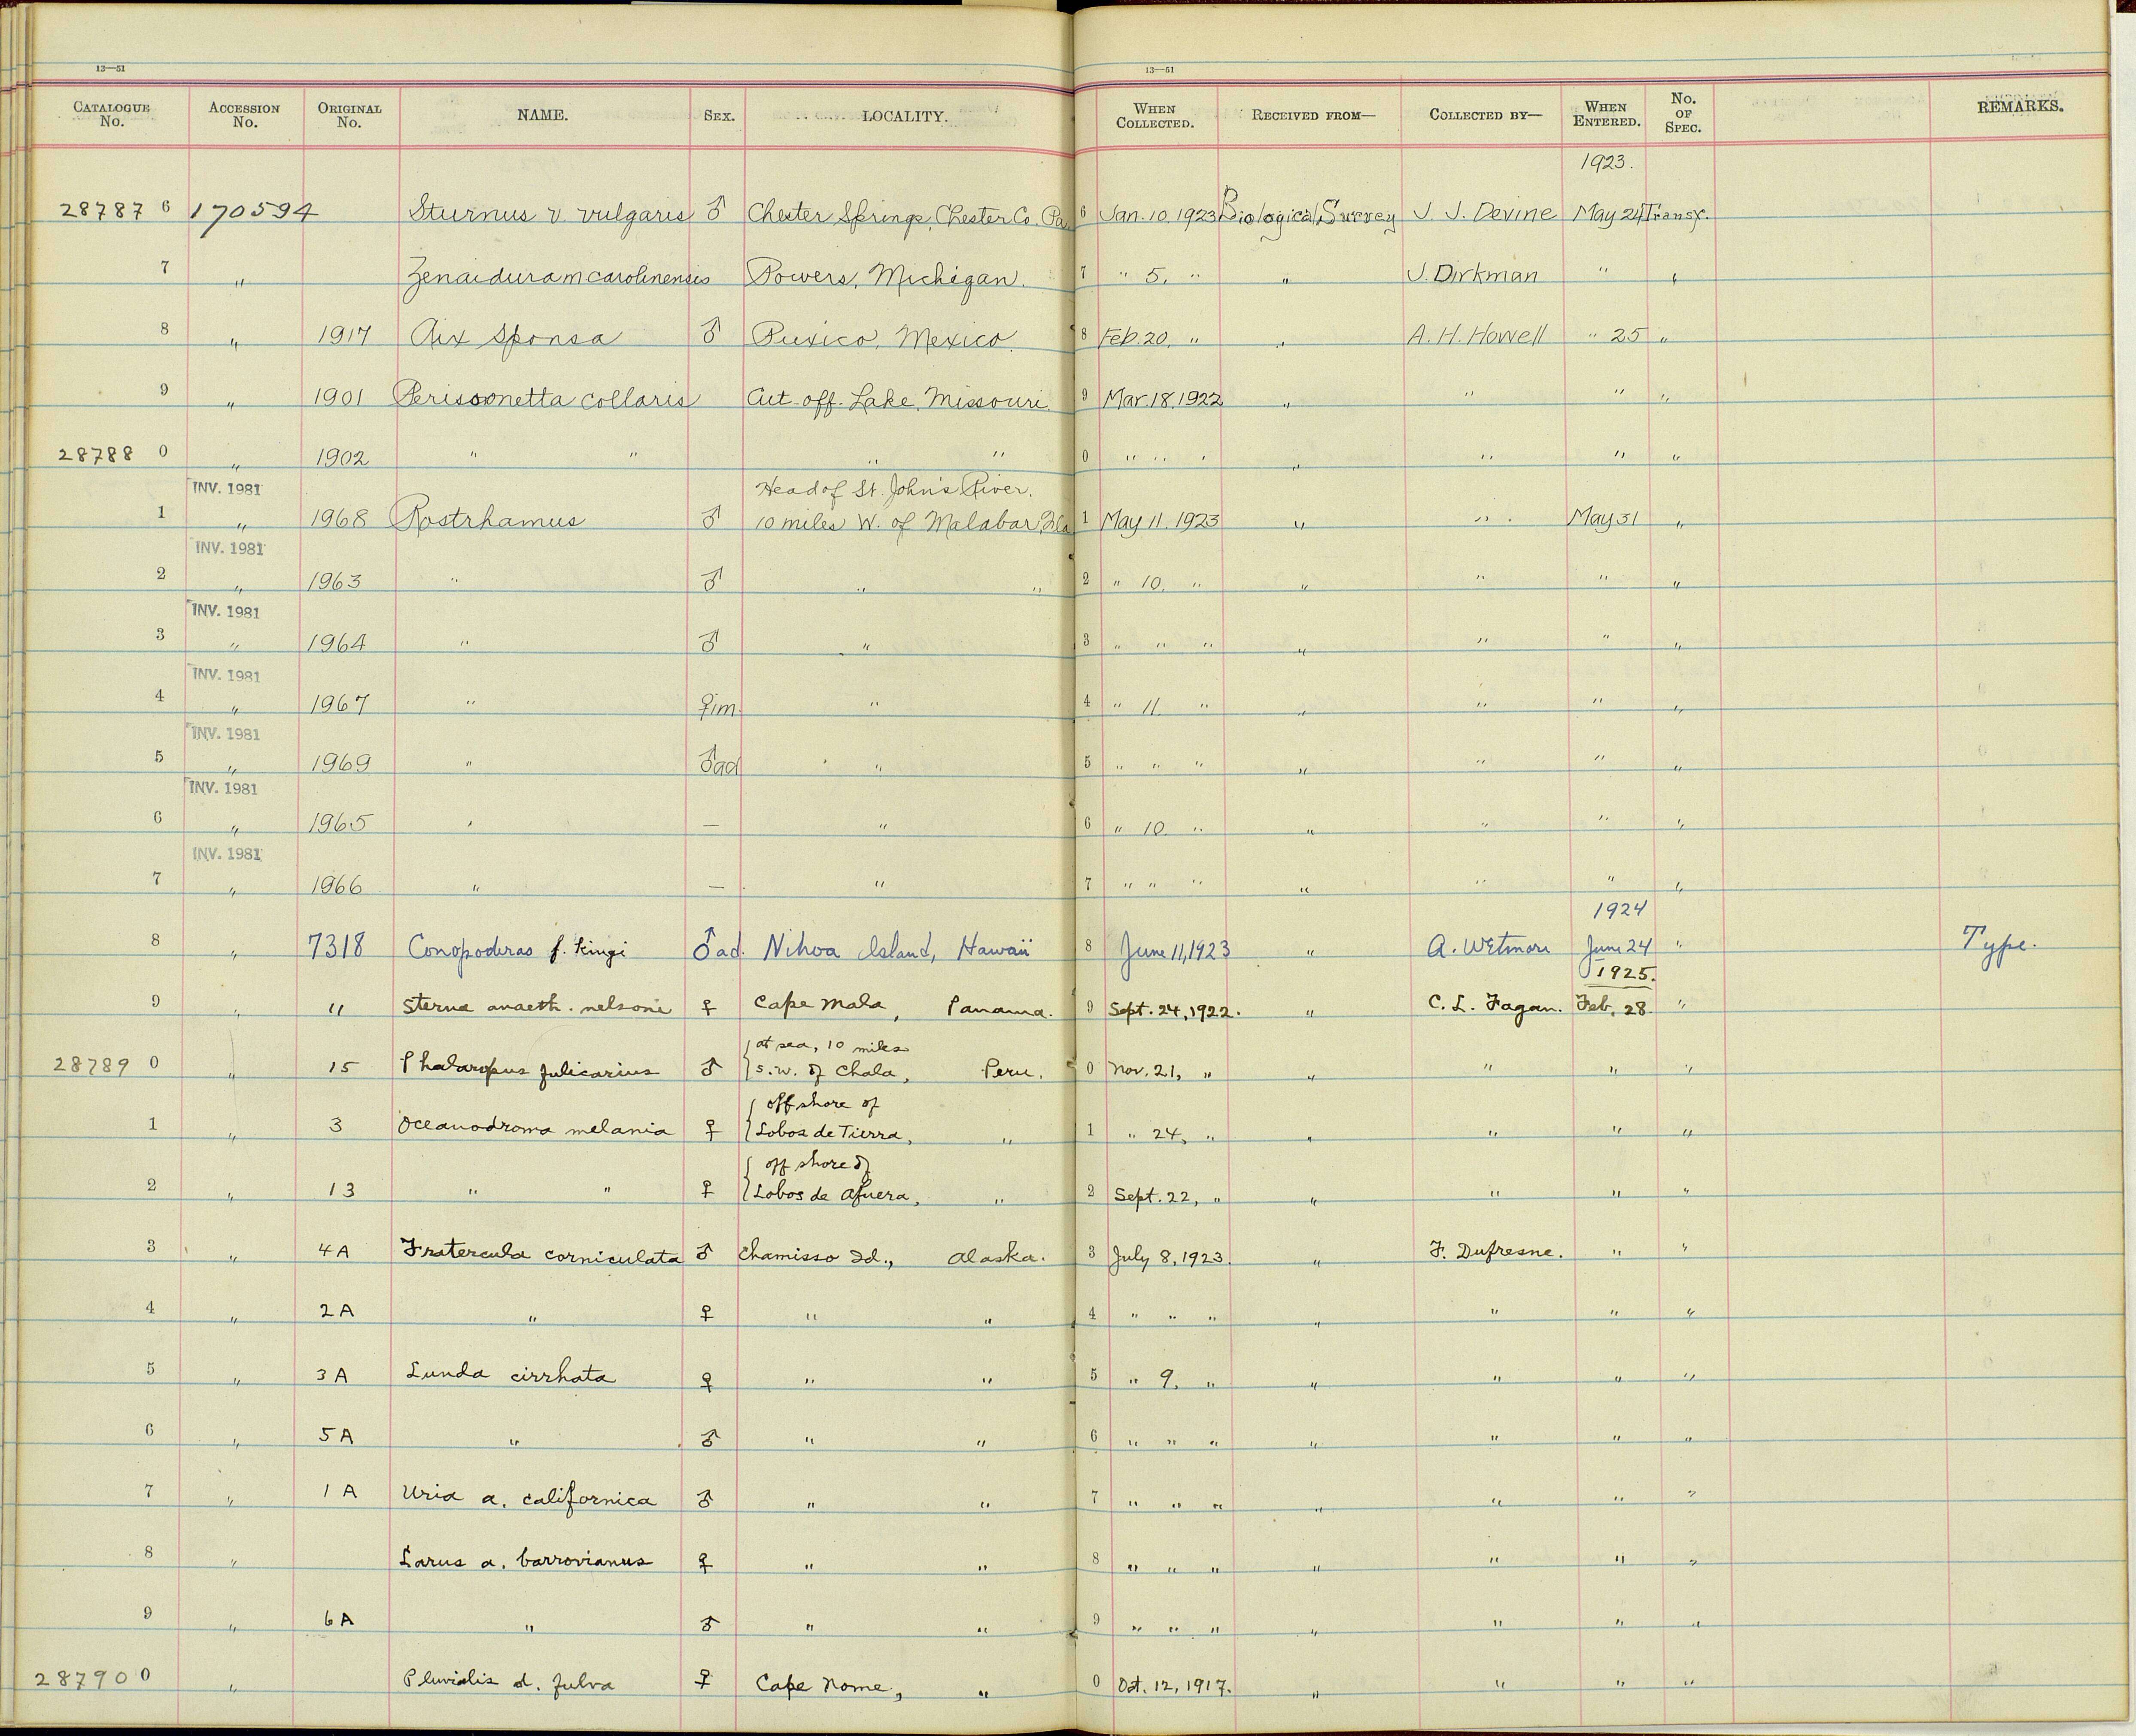 13—51 13—51
CATALOGUE No. ACCESSION No. ORIGINAL No. NAME. SEX. LOCALITY. WHEN COLLECTED. RECEIVED FROM— COLLECTED BY— WHEN ENTERED. No. OF SPEC. REMARKS.
1923.
28787 6 170594 Sturnus v. vulgaris ♂ Chester Springs, Chester Co. Pa. 6 Jan. 10, 1923 Biological Survey J. J. Devine May 24 Transf.
7 " Zenaidura m carolinensis Powers, Michigan. 7 " 5. " " J. Dirkman " "
8 " 1917 Aix sponsa ♂ Puxico, Mexico. 8 Feb. 20, " " A. H. Howell " 25 "
9 " 1901 Perissonetta collaris Cut-off Lake, Missouri. 9 Mar. 18, 1922 " " " "
28788 0 " 1902 " " " " 0 " " " " " " "
INV. 1981 Head of St. John's River.
1 " 1968 Rostrhamus ♂ 10 miles W. of Malabar, Fla 1 May 11, 1923 " " May 31 "
INV. 1981
2 " 1963 " ♂ " " 2 " 10. " " " " "
INV. 1981
3 " 1964 " ♂ " 3 " " " " " " "
INV. 1981
4 " 1967 " ♀im. " 4 " 11. " " " " "
INV. 1981
5 " 1969 " ♂ad " 5 " " " " " " "
INV. 1981
6 " 1965 " — " 6 " 10. " " " " "
INV. 1981
7 " 1966 " — " 7 " " " " " " "
1924
8 " 7318 Conopoderas f. kingi ♂ad. Nihoa Island, Hawaii 8 June 11, 1923 " A. Wetmore June 24 " Type.
1925.
9 " 11 Sterna anaeth. nelsoni ♀ Cape Mala, Panama. 9 Sept. 24, 1922. " C. L. Fagan. Feb. 28. "
at sea, 10 miles
28789 0 " 15 Phalaropus fulicarius ♂ s.w. of Chala, Peru. 0 Nov. 21, " " " " "
off shore of
1 " 3 Oceanodroma melania ♀ Lobos de Tierra, " 1 " 24, " " " " "
off shore of
2 " 13 " " ♀ Lobos de Afuera, " 2 Sept. 22, " " " " "
3 " 4A Fratercula corniculata ♂ Chamisso Id., Alaska. 3 July 8, 1923. " F. Dufresne. " "
4 " 2A " ♀ " " 4 " " " " " " "
5 " 3A Lunda cirrhata ♀ " " 5 " 9. " " " " "
6 " 5A " ♂ " " 6 " " " " " " "
7 " 1A Uria a. californica ♂ " " 7 " " " " " " "
8 " Larus a. barrovianus ♀ " " 8 " " " " " " "
9 " 6A " ♂ " " 9 " " " " " " "
28790 0 " Pluvialis d. fulva ♀ Cape Nome, " 0 Oct. 12, 1917. " " " "